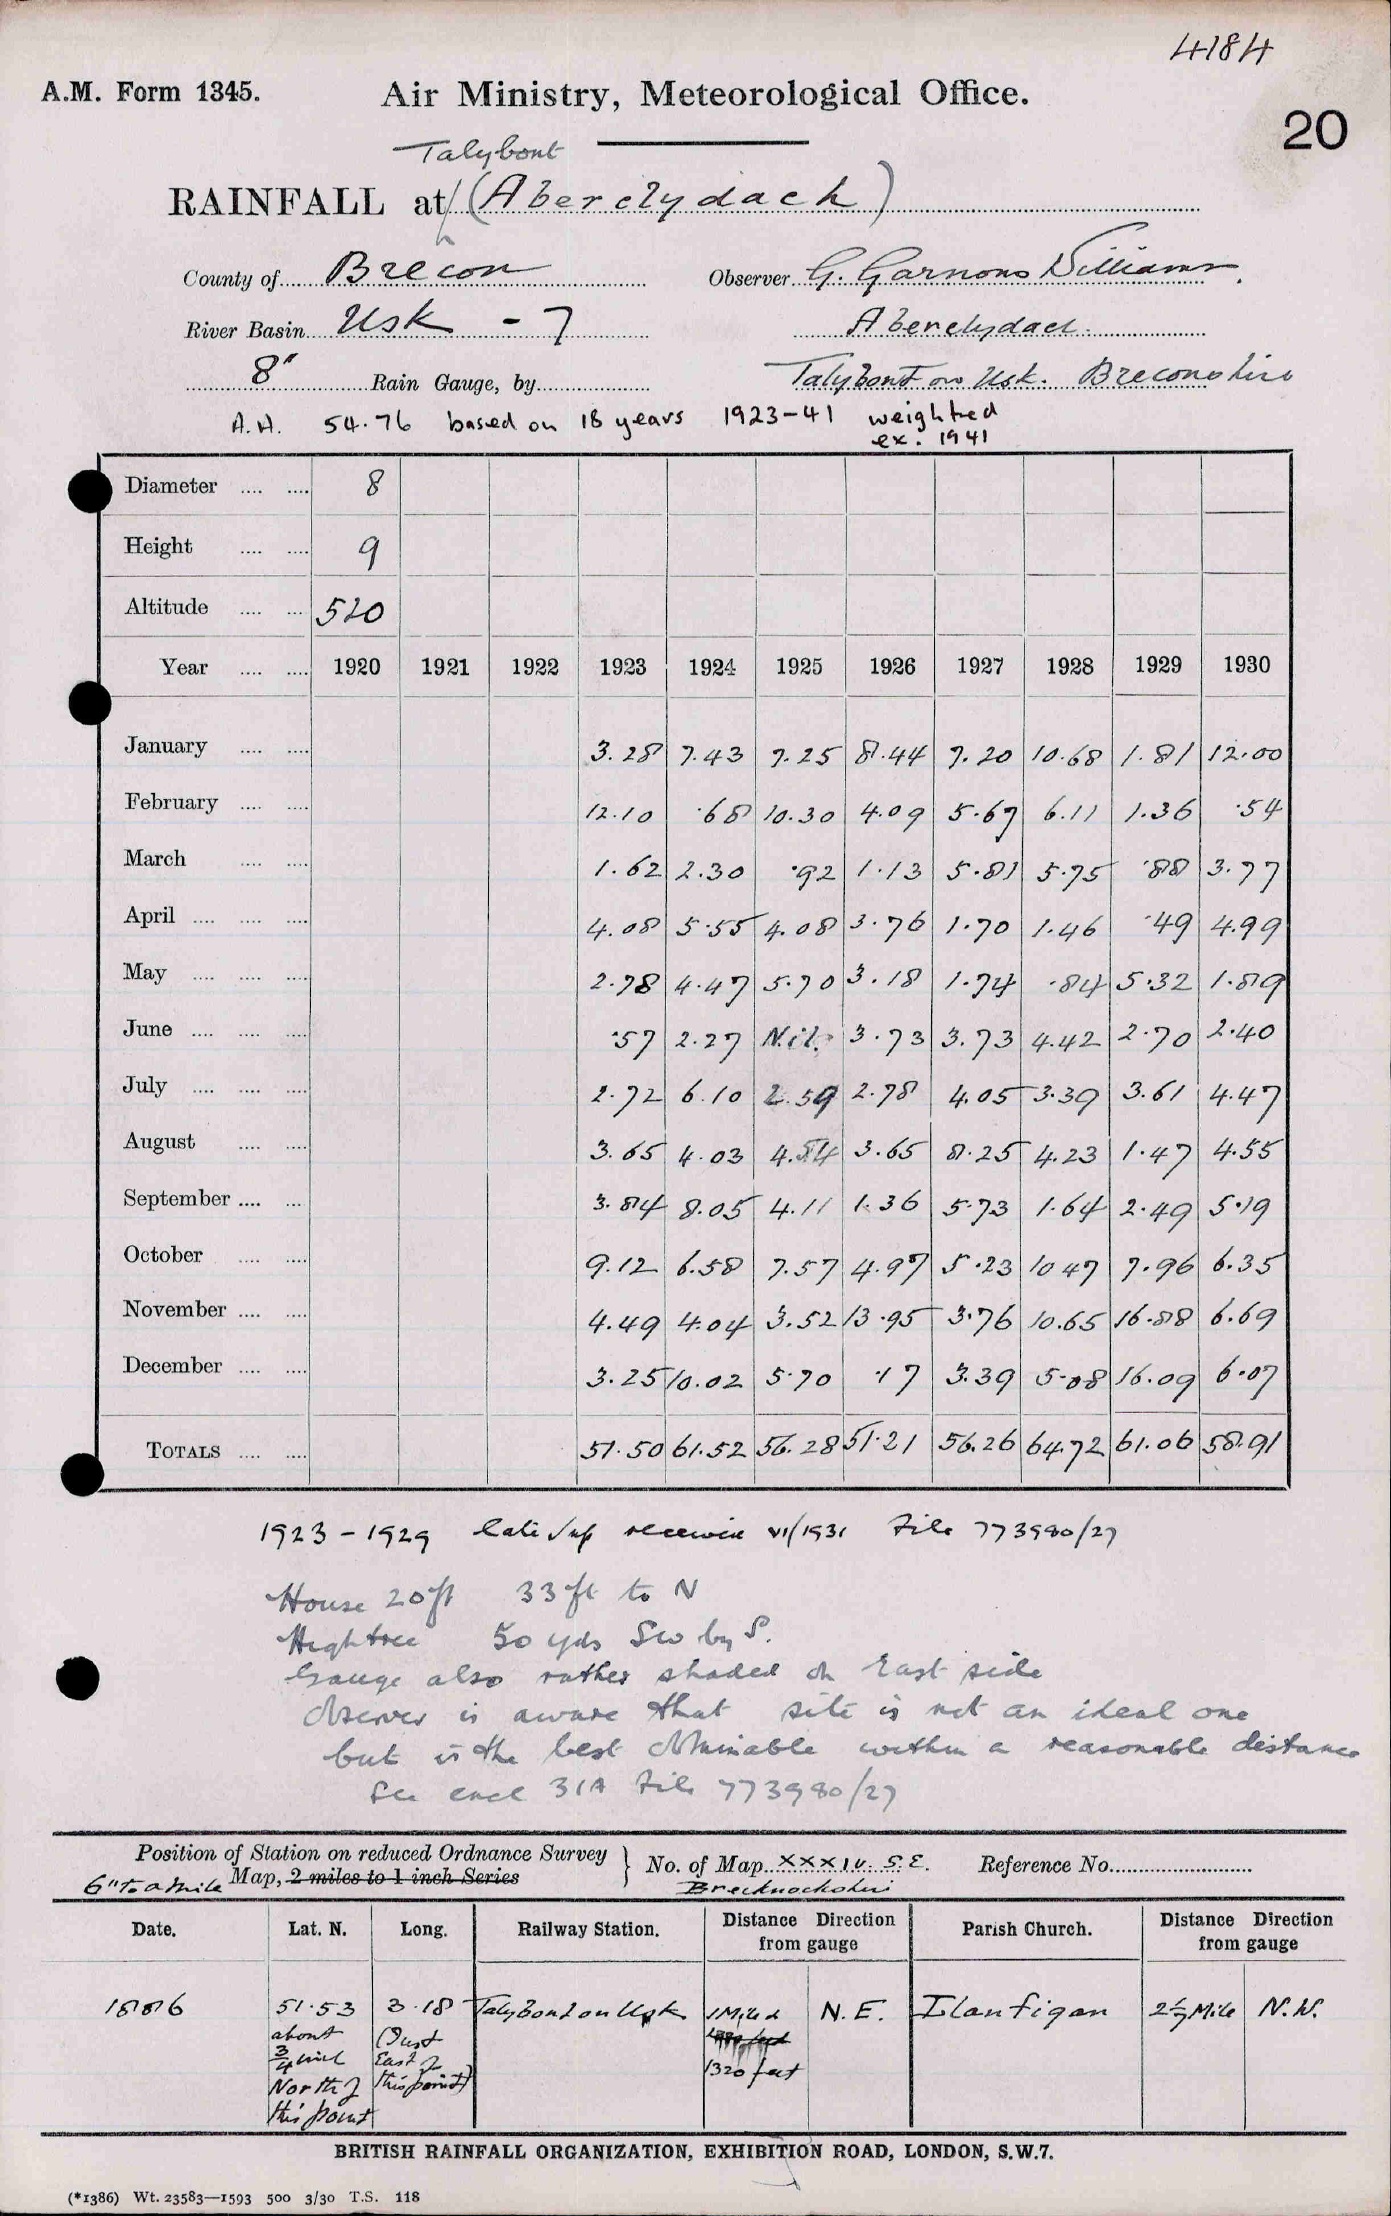 4184
A.M. Form 1345.
Air Ministry, Meteorological Office.
20
Talybont
RAINFALL at (Aberclydach)
County of Brecon
Observer G. Garnons Williams.
River Basin Usk - 7
Aberclydach.
8" Rain Gauge, by
Talybont on Usk. Breconshire
A.A. 54.76 based on 18 years 1923-41 weighted
ex. 1941
Diameter 8
Height 9
Altitude 520
Year 1920 1921 1922 1923 1924 1925 1926 1927 1928 1929 1930
January 3.28 7.43 7.25 8.44 7.20 10.68 1.81 12.00
February 12.10 .68 10.30 4.09 5.67 6.11 1.36 .54
March 1.62 2.30 .92 1.13 5.81 5.75 .88 3.77
April 4.08 5.55 4.08 3.76 1.70 1.46 .49 4.99
May 2.78 4.47 5.70 3.18 1.74 .84 5.32 1.89
June .57 2.27 Nil. 3.73 3.73 4.42 2.70 2.40
July 2.72 6.10 2.59 2.78 4.05 3.39 3.61 4.47
August 3.65 4.03 4.54 3.65 8.25 4.23 1.47 4.55
September 3.84 8.05 4.11 1.36 5.73 1.64 2.49 5.19
October 9.12 6.58 7.57 4.97 5.23 10 47 7.96 6.35
November 4.49 4.04 3.52 13.95 3.76 10.65 16.88 6.69
December 3.25 10.02 5.70 .17 3.39 5.08 16.09 6.07
TOTALS 51.50 61.52 56.28 51.21 56.26 64.72 61.06 58.91
1923 - 1929 VI/1931 File 773980/27
House 20ft 33ft to N
High tree 50 yds SW by S.
Gauge also rather shaded on East side
Observer is aware that site is not an ideal one
but is the best obtainable within a reasonable distance
See encl 31A File 773980/27
Position of Station on reduced Ordnance Survey
Map, 2 miles to 1 inch Series
6" to a mile
No. of Map XXXIV. S.E.
Brecknockshire
Reference No.
Date. Lat. N. Long. Railway Station. Distance Direction from gauge Parish Church. Distance Direction from gauge
1886 51.53 3.18 Talybont on Usk 1 Mile & N.E. Llanfigan 2½ Mile N.W.
about
3/4 mile
North of
this point
(Just
East of
this point)
1320 feet
BRITISH RAINFALL ORGANIZATION, EXHIBITION ROAD, LONDON, S.W.7.
(*1386) Wt. 23583—1593 500 3/30 T.S. 118